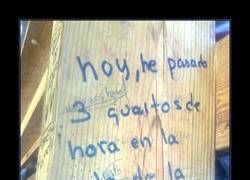 hoy, he pasado
3 quartos de
hora en la
de la